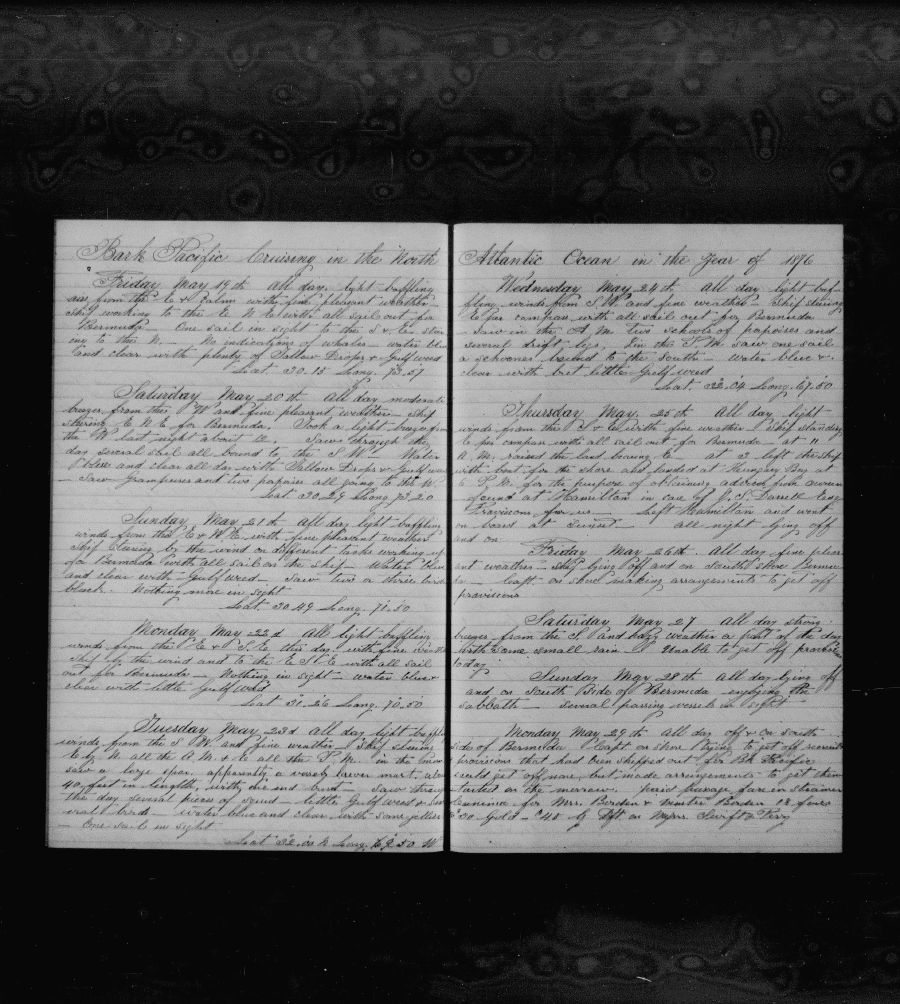 Bark Pacific Cruising in the North
Friday May 19th All day light baffling
airs from the E & calm with fine pleasant weather
Ship working to the E N E with all sail out for
Bermuda – One sail in sight to the S & E
to the N. – No indications of whales – water blue
and clear with plenty of Yellow Drops & Gulf weed
Lat 30.15 Long. 73.57
Saturday May 20th All day moderate
breezes from the W and fine pleasant weather – Ship
steering E N E for Bermuda. Took a light breeze from
the W last night about 12. Saw through the
day several sail all bound to the S W – Water
blue and clear all day with Yellow Drops & Gulf weed
– Saw Grampuses and two papoises all going to the W.
Lat 30.29 Long 73.20
Sunday May 21th All day light baffling
winds from the E & N E with fine pleasant weather
Ship by the wind on different tacks working up
for Bermuda with all sail on the Ship – Water blue
and clear with Gulf weed – Saw two a three
black. Nothing more in sight
Lat 30.49 Long. 71.50
Monday May 22d All light baffling
winds from the E & S E this day with fine
Ship by the wind and to the E S E with all sail
out for Bermuda – Nothing in sight – water blue &
clear with little Gulf weed
Lat 31.26 Long. 70.50
Tuesday May 23d All day light baffling
winds from the S W and fine weather – Ship steering
E by N all the A.M. & E all the P M. in the
saw a large spar apparently a vessels lower mast, about
40, feet in length, with one end – Saw through
the day several pieces of – little Gulf weed &
– water blue and clear with some yellow
– One sail in sight
Lat 32.00 Long. 69.50 W
Atlantic Ocean in the Year of 1876
Wednesday May 24th All day light baf-
fling winds from S W and fine weather – Ship steering
E per compass with all sail out for Bermuda
Saw in the A M two schools of papoises and
several drift logs, In the P M saw one sail
a schooner bound to the South – water blue &
clear with but little Gulf weed
Lat 32.04 Long. 67.50
Thursday May. 25th All day light
winds from the S & E with fine weather Ship standing
E per compass with all sail out for Bermuda – at 11
A.M. raised the land bearing E at 3 left the ship
with boat for the shore and landed at Hungary Bay at
6 P.M. for the purpose of obtaining advices from owners
found at Hamilton in care of J. S. Darrell Esq
Provisions for us – Left Hamilton and went
on board at – all night lying off
and on
Friday May 26th. All day fine pleas-
ant weather – Ship lying off and on South Shore
– Capt. on shore making arrangements to get off
provisions
Saturday May 27 All day strong
breezes from the S and hazy weather a part of the day
with some small rain – Unable to get off
today
Sunday May 28th All day lying off
and on South Side of Bermuda enjoying the
Sabbath – Several passing vessels in sight
Monday May 29th All day off & on south
side of Bermuda Capt. on shore trying to get off
provisions that had been shipped out for Bk Pacific
could get off none, but made arrangements to get them
on the morrow. paid passage fare in steamer
for Mrs. Borden & Master Borden 1 3/4 fares
Gold – $45 by Dft on Messrs Swift & Perry